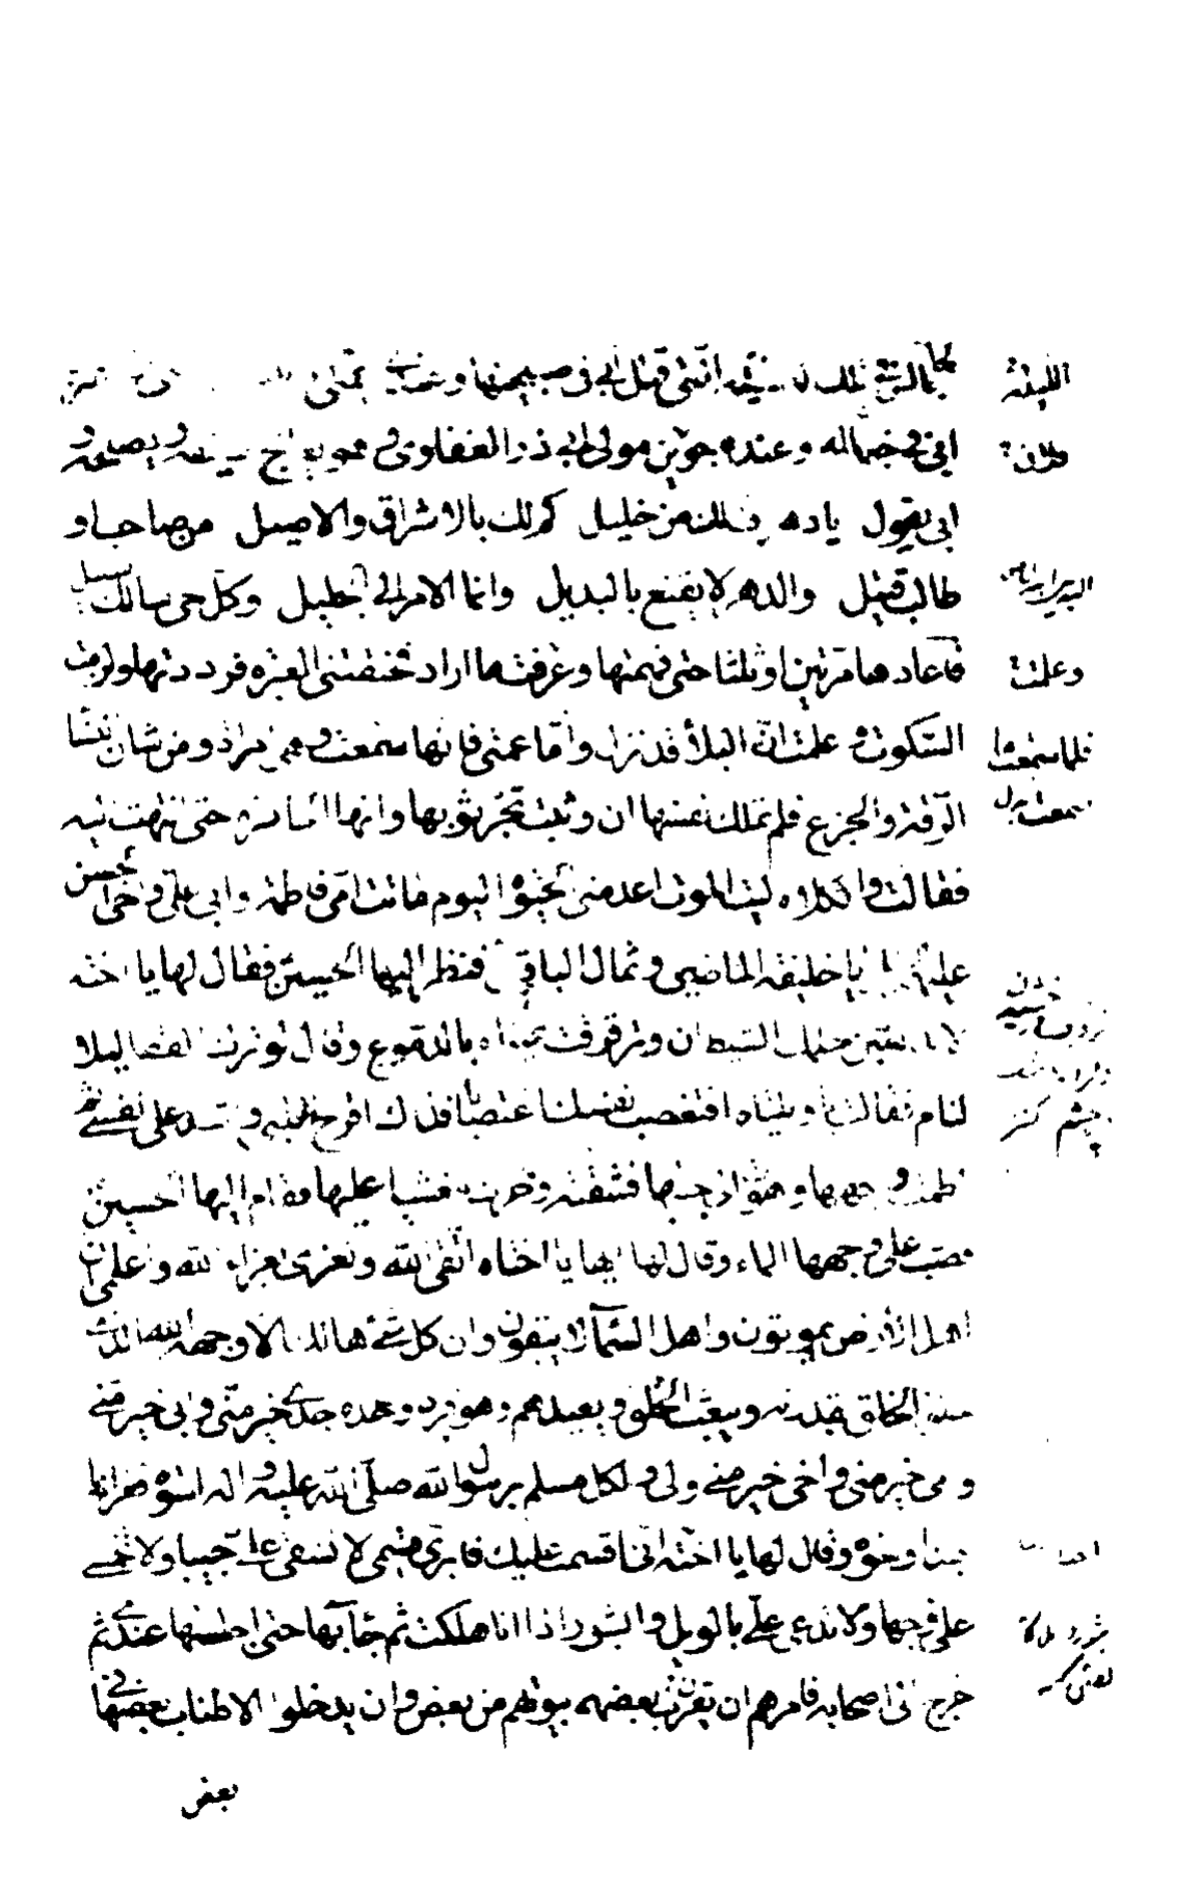 لجالس في تلك العشية التي قتل ابي في صبيحتها و عندي عمتي
ابي في خباء له وعنده جوين مولى ابي ذر الغفاري وهو يعالج سيفه ويصلحه و
ابي يقول يا دهر اف لك من خليل كم لك بالاشراق والاصيل من صاحب او
طالب قتيل والدهر لا يقنع بالبديل وانما الامر الى الجليل وكل حي سالك سبيلي
فاعادها مرتين او ثلثا حتى فهمتها وعرفت ما اراد فخنقتني العبرة فرددتها ولزمت
السكوت وعلمت ان البلاء قد نزل واما عمتي فانها سمعت وهي امراة ومن شان النساء
الرقة والجزع فلم تملك نفسها ان وثبت تجر ثوبها وانها حتى انتهت اليه
فقالت واثكلاه ليت الموت اعدمني الحيوة اليوم ماتت امي فاطمة وابي علي واخي الحسن
يا خليفة الماضي وثمال الباقي فنظر اليها الحسين فقال لها يا اخته
لا الشيطان وترقرقت عيناه بالدموع وقال لو ترك القطا ليلا
لنام فقالت يا ويلتاه افتغتصب نفسك اغتصابا فذاك اقرح لقلبي و على نفسي ثم
لطمت وجهها و جيبها فشقته وخرت مغشيا عليها فقام اليها الحسين
فصب على وجهها الماء وقال لها ايها يا اختاه اتقي الله وتعزي بعزاء الله واعلمي ان
اهل الارض يموتون واهل السماء لا يبقون وان كل شئ هالك الا وجه الله الذي
خلق الخلق بقدرته ويبعث الخلق ويعيدهم وهو فرد وحده جدي خير مني وابي خير مني
وامي خير مني واخي خير مني ولي ولكل مسلم برسول الله صلى الله عليه واله اسوة فعزاها
بهذا ونحوه وقال لها يا اخته اني اقسمت عليك فابري قسمي لا تشقي علي جيبا ولا تخمشي
علي وجها ولا تدعي علي بالويل والثبور اذا انا هلكت ثم جاء بها حتى اجلسها عندي ثم
خرج الى اصحابه فامرهم ان يقرن بعضهم بيوتهم من بعض وان يدخلوا الاطناب بعضها في
بعض
الليلة
وعلمت
فلما سمعت ما
چشم